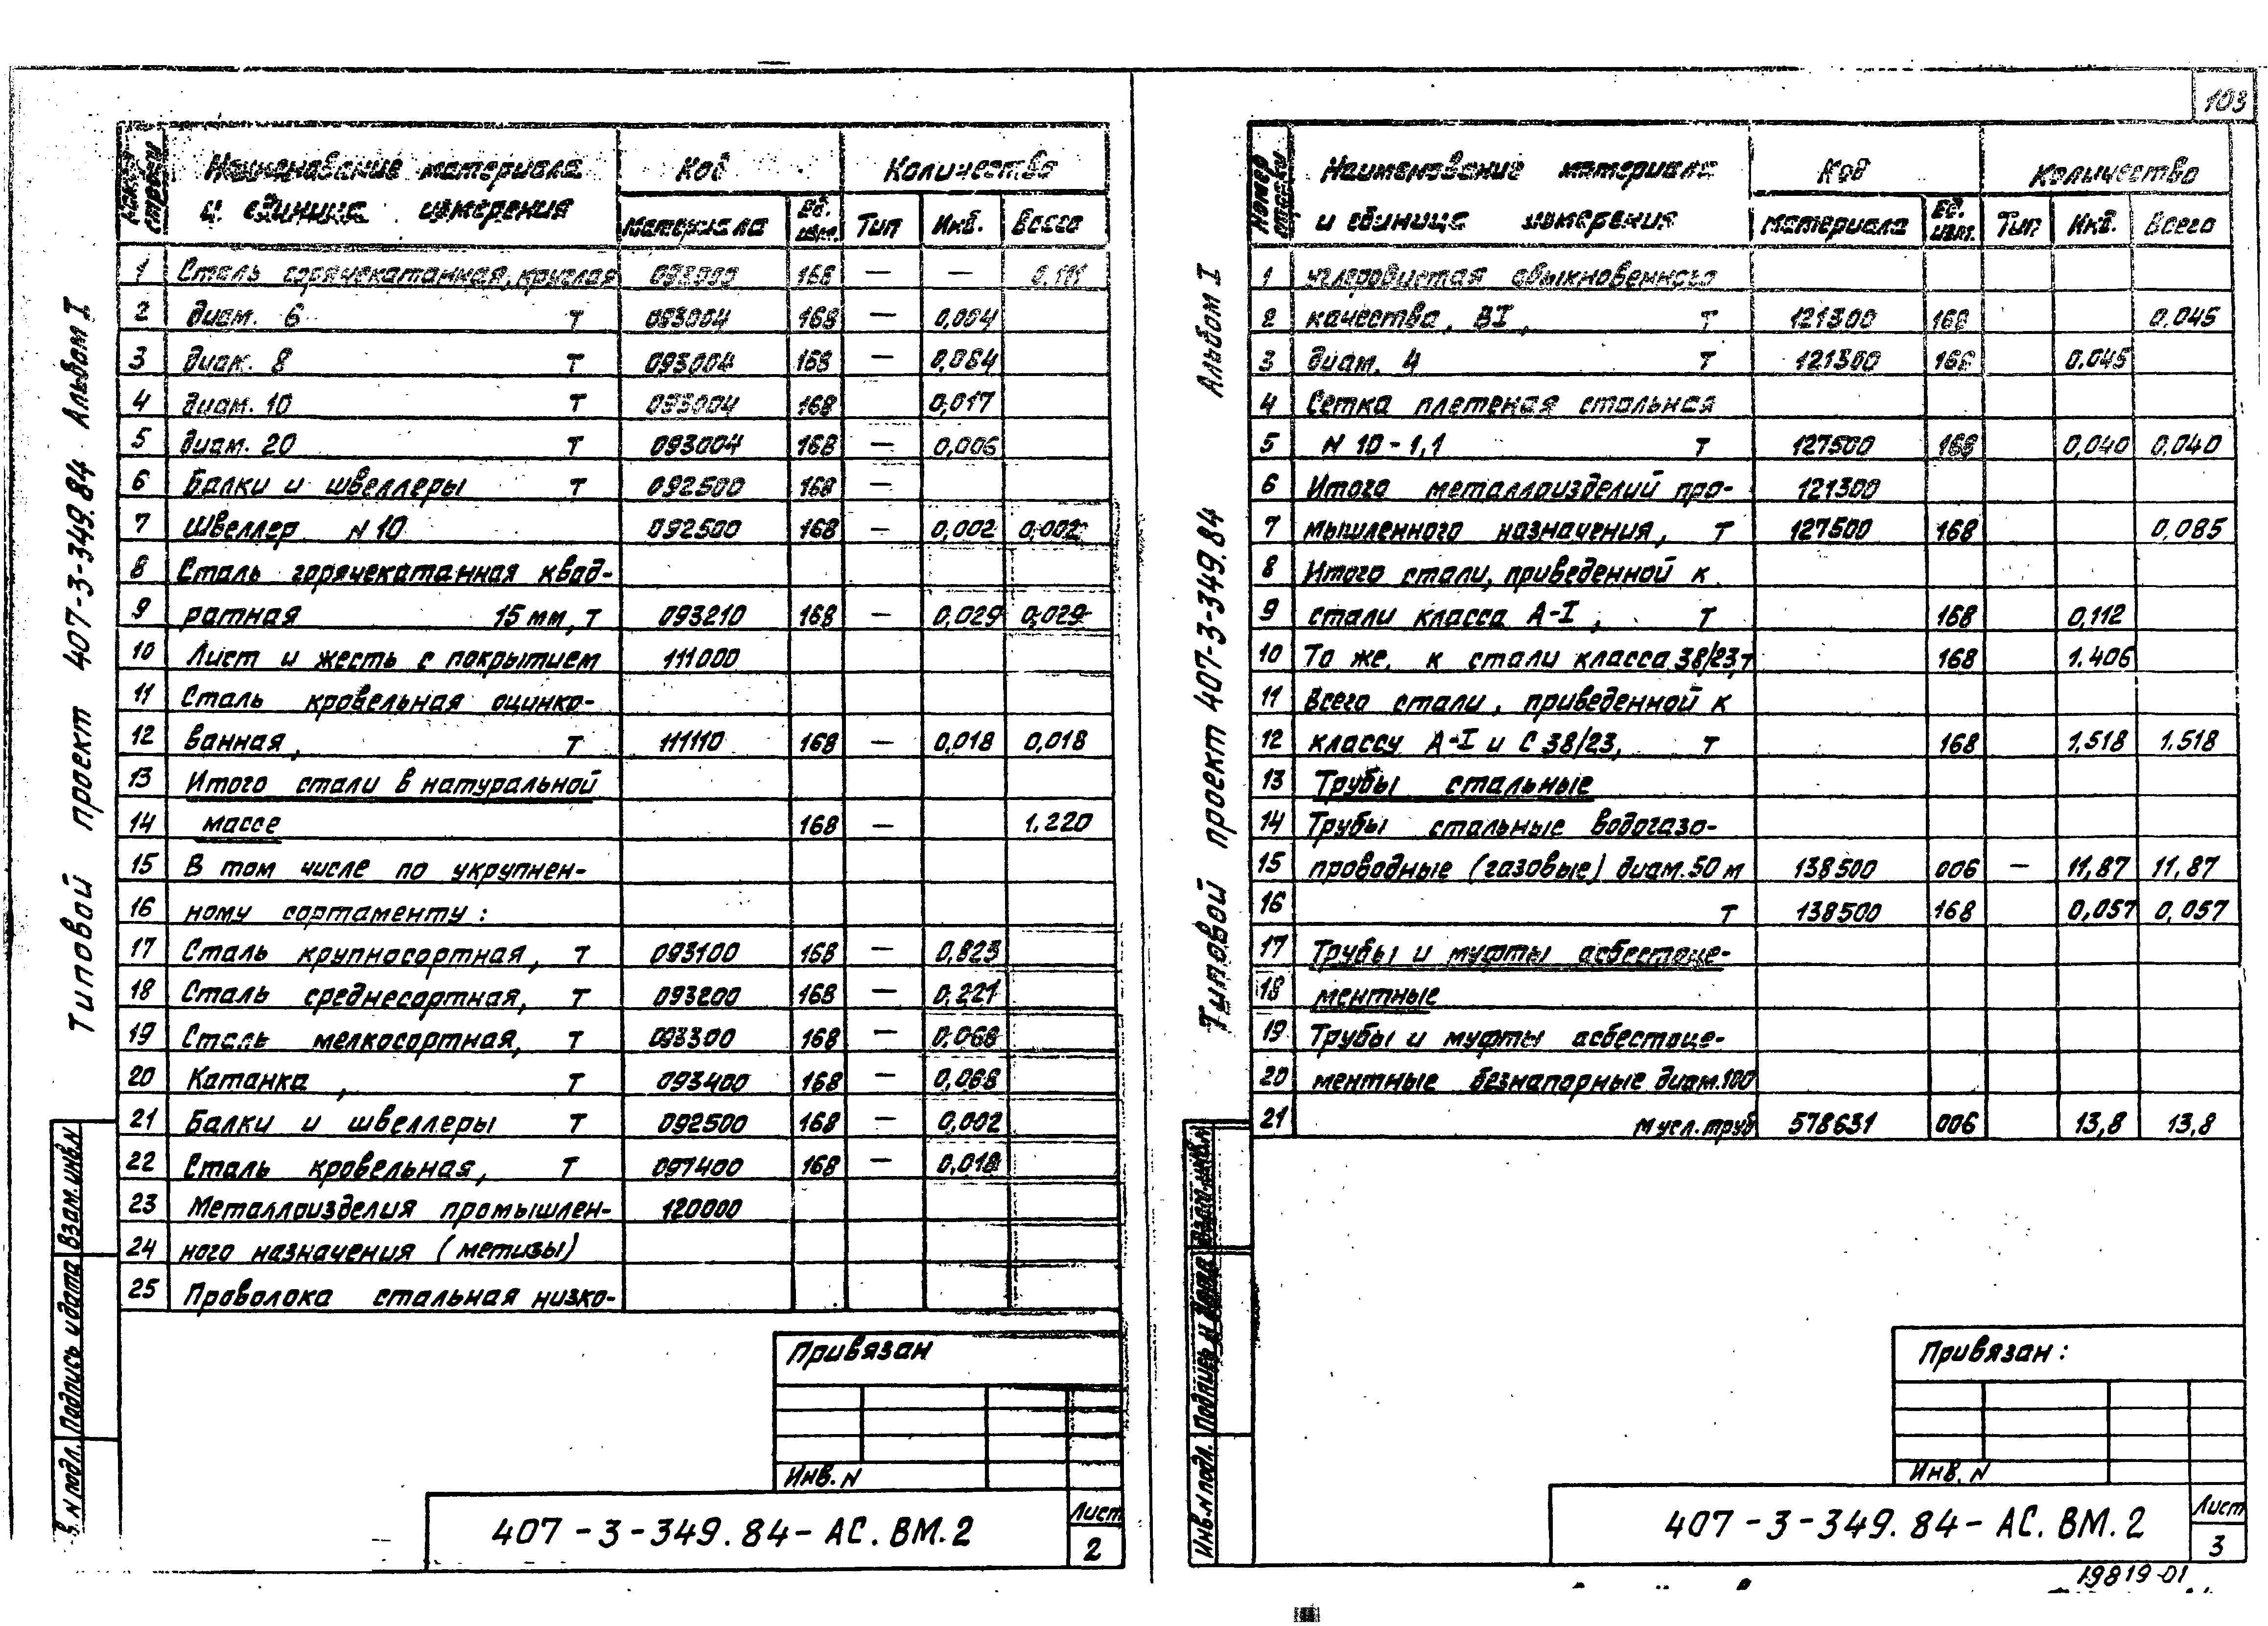 103
Типовой проект 407-3-349.84 Альбом I
Номер строки | Наименование материала и единица измерения | Код материала | Код Ед. изм. | Количество Тип | Количество Инд. | Количество Всего
1 Сталь горячекатанная, круглая 093000 168 — — 0.111
2 диам. 6 т 093004 168 — 0,004
3 диам. 8 т 093004 168 — 0,084
4 диам. 10 т 093004 168 0,017
5 диам. 20 т 093004 168 — 0,006
6 Балки и швеллеры т 092500 168 —
7 Швеллер N 10 092500 168 — 0,002 0,002
8 Сталь горячекатанная квад-
9 ратная 15 мм, т 093210 168 — 0,029 0,029
10 Лист и жесть с покрытием 111000
11 Сталь кровельная оцинко-
12 ванная, т 111110 168 — 0,018 0,018
13 Итого стали в натуральной
14 массе 168 — 1.220
15 В том числе по укрупнен-
16 ному сортаменту:
17 Сталь крупносортная, т 093100 168 — 0,823
18 Сталь среднесортная, т 093200 168 — 0,221
19 Сталь мелкосортная, т 093300 168 — 0,068
20 Катанка, т 093400 168 — 0,068
21 Балки и швеллеры т 092500 168 — 0,002
22 Сталь кровельная, т 097400 168 — 0,018
23 Металлоизделия промышлен- 120000
24 ного назначения (метизы)
25 Проволока стальная низко-
Взам. инв. N
Подпись и дата
N подл.
Привязан
Инв. N
407-3-349.84-АС.ВМ.2
Лист
2
Типовой проект 407-3-349.84 Альбом I
Номер строки | Наименование материала и единица измерения | Код материала | Код Ед. изм. | Количество Тип | Количество Инд. | Количество Всего
1 углеродистая обыкновенного
2 качества, ВI, т 121300 168 0.045
3 диам. 4 т 121300 168 0.045
4 Сетка плетеная стальная
5 N 10-1,1 т 127500 168 0,040 0,040
6 Итого металлоизделий про- 121300
7 мышленного назначения, т 127500 168 0,085
8 Итого стали, приведенной к
9 стали класса А-I, т 168 0,112
10 То же, к стали класса 38/23, т 168 1.406
11 Всего стали, приведенной к
12 классу А-I и С 38/23, т 168 1,518 1.518
13 Трубы стальные
14 Трубы стальные водогазо-
15 проводные (газовые) диам. 50 м 138500 006 — 11,87 11,87
16 т 138500 168 0,057 0,057
17 Трубы и муфты асбестоце-
18 ментные
19 Трубы и муфты асбестоце-
20 ментные безнапорные диам. 100
21 м усл. труб 578631 006 13,8 13,8
Взам. инв. N
Подпись и дата
Инв. N подл.
Привязан:
Инв. N
407-3-349.84-АС.ВМ.2
Лист
3
19819-01